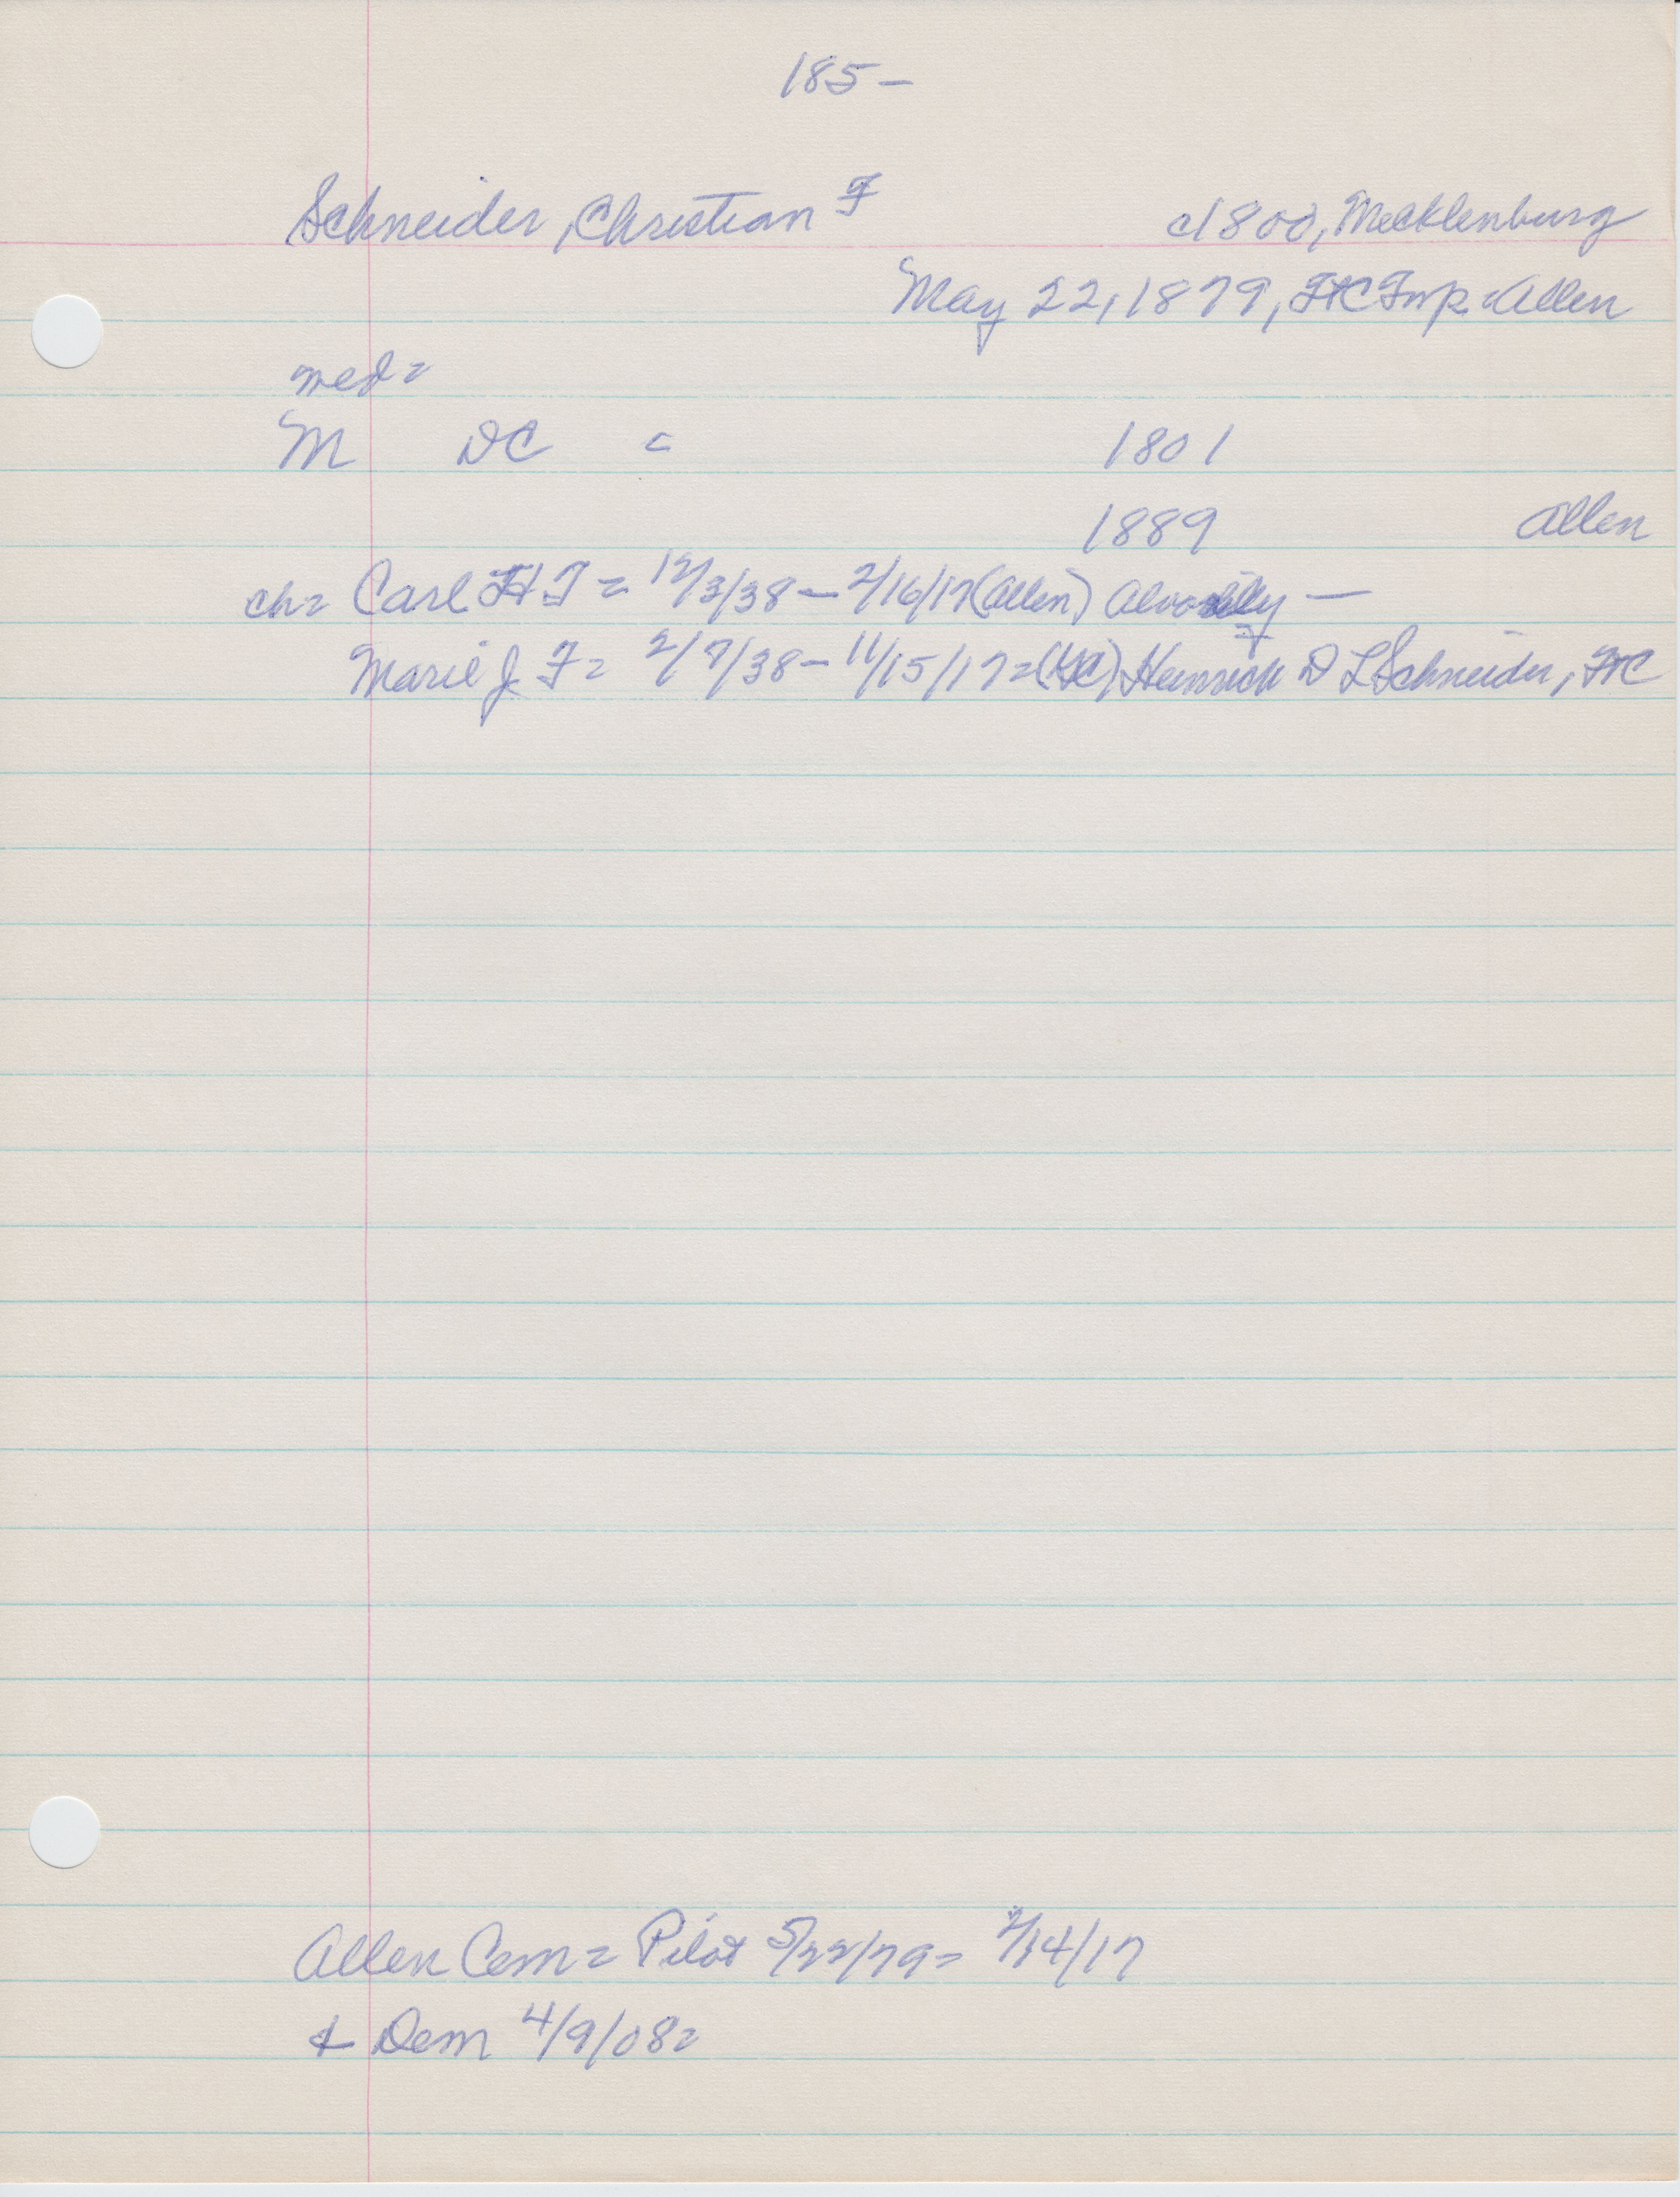 185-
Schneider, Christian F c1800, Mecklenburg
May 22, 1879, FtC Twp = Allen
med =
M DC = 1801
1889 Allen
ch = Carl H F = 12/3/38 - 2/16/17 (Allen) -
Marie J. F = 2/7/38 - 11/15/17 = Heinrich D L Schneider, FtC
Allen Cem = Pilot 5/22/79 = 2/14/17
& Dem 4/9/08 =